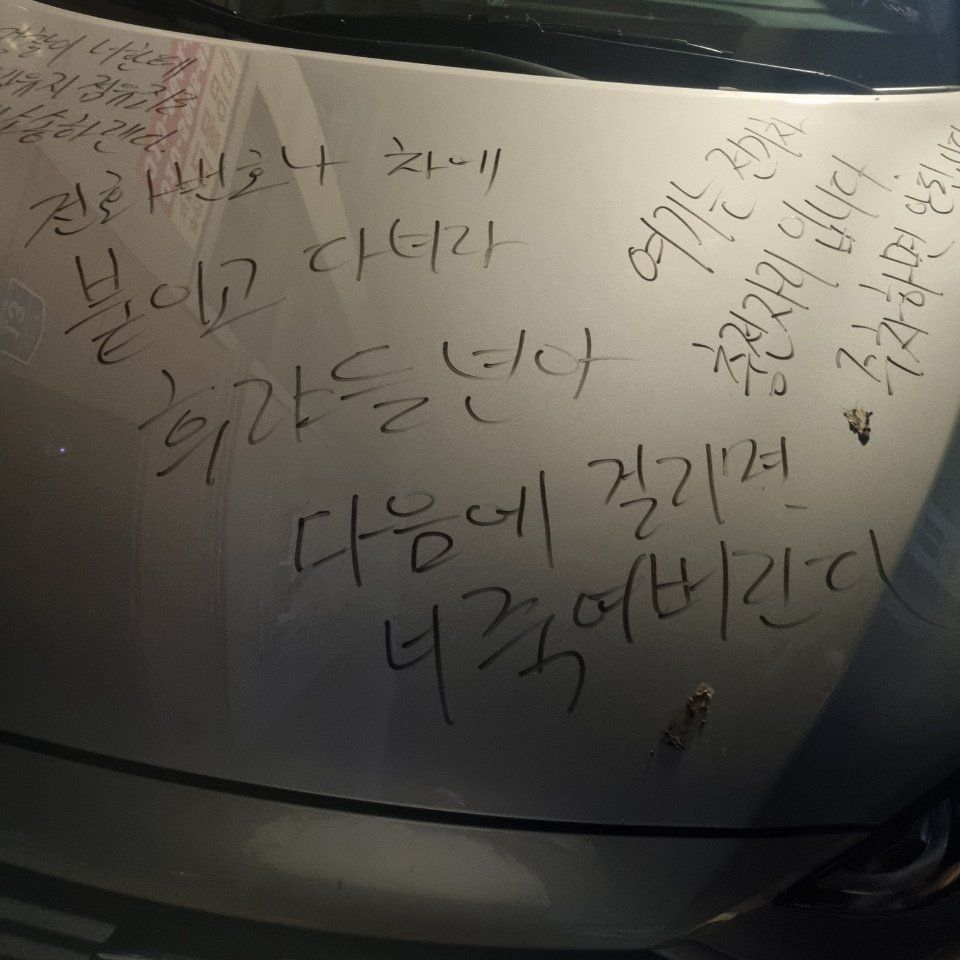 너한테
점유
전화번호나 차에
붙이고 다녀라
후랴들년아
다음에 걸리면
너 죽여버린다
여기는 전기차
충전자리 입니다.
주차하면 안됩니다